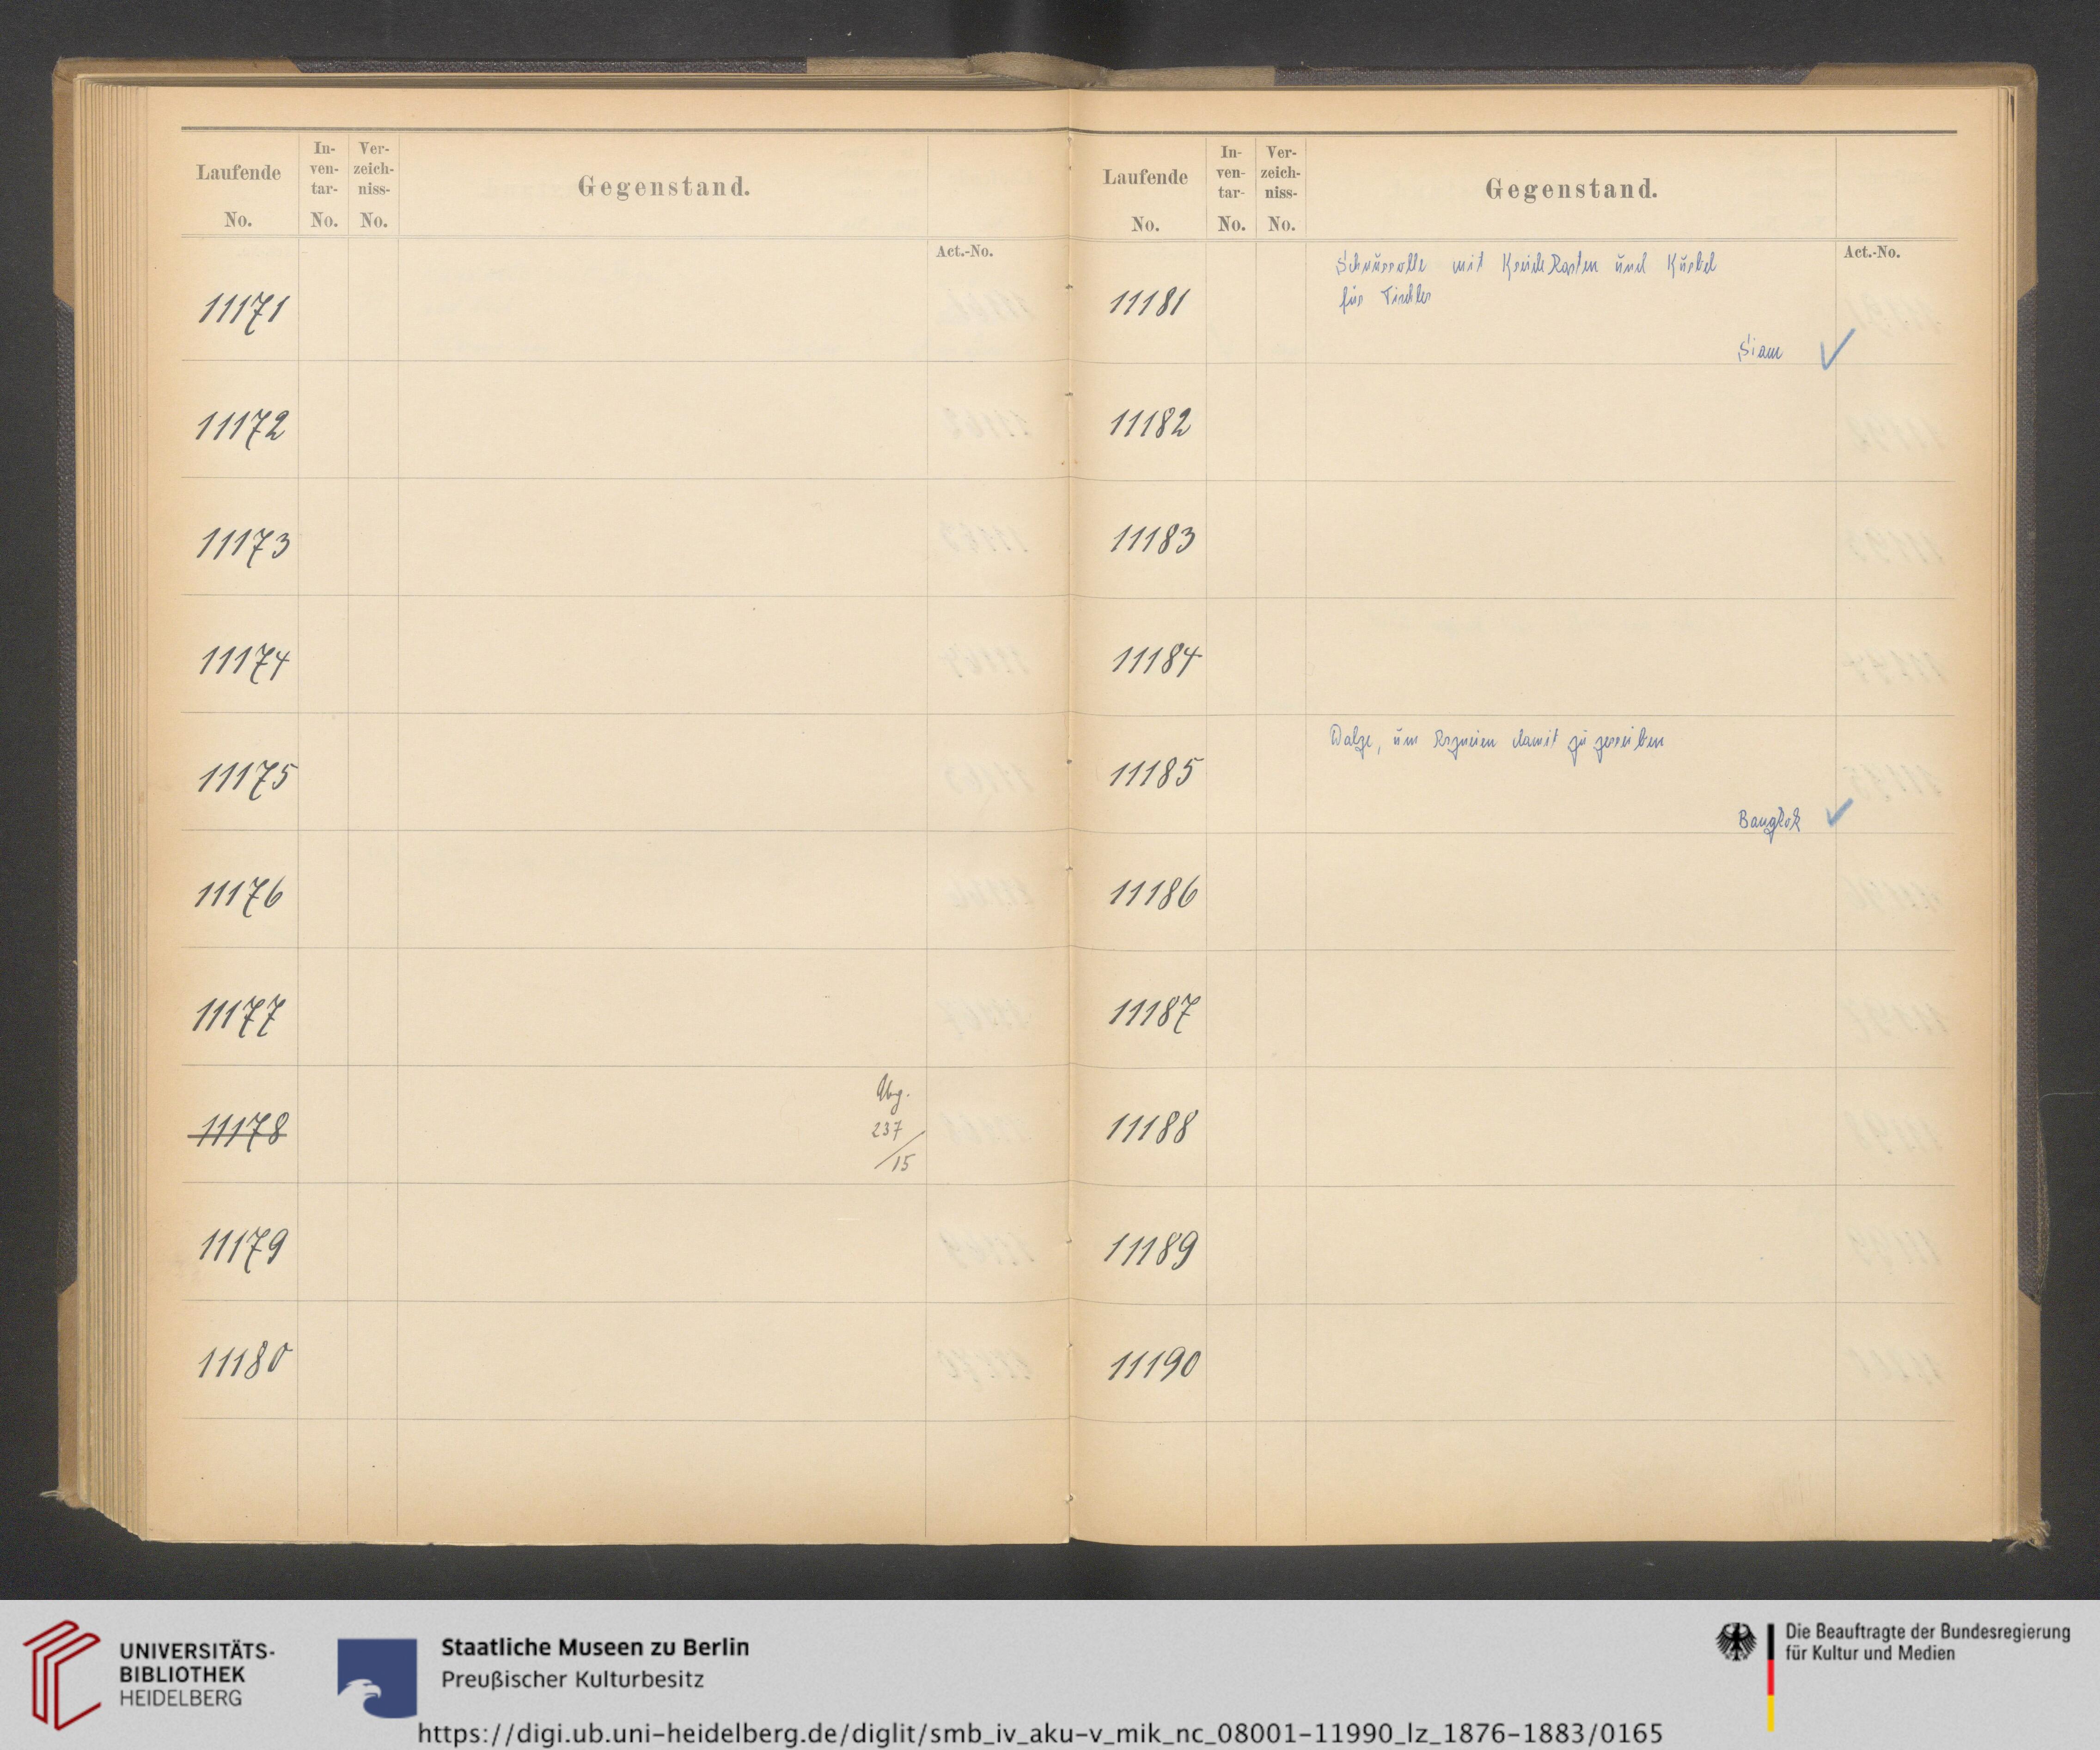 Laufende No.
In-ven-tar-No.
Ver-zeich-niss-No.
Gegenstand.
Act.-No.
11171
11172
11173
11174
11175
11176
11177
11178
Abg.
237
/15
11179
11180
Laufende No.
In-ven-tar-No.
Ver-zeich-niss-No.
Gegenstand.
Act.-No.
11181
Schnurrolle mit Kreidekasten und Kurbel
für Tischler
Siam ✓
11182
11183
11184
11185
Walze, um Arzneien damit zu zerreiben
Bangkok ✓
11186
11187
11188
11189
11190
UNIVERSITÄTS-
BIBLIOTHEK
HEIDELBERG
Staatliche Museen zu Berlin
Preußischer Kulturbesitz
Die Beauftragte der Bundesregierung
für Kultur und Medien
https://digi.ub.uni-heidelberg.de/diglit/smb_iv_aku-v_mik_nc_08001-11990_lz_1876-1883/0165